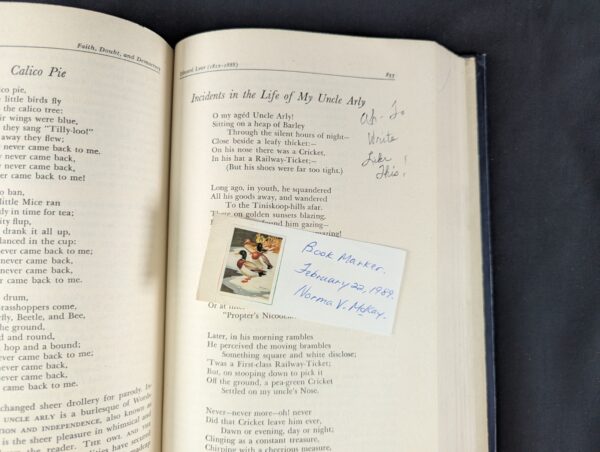 Faith, Doubt, and Democracy
Calico Pie
pie,
little birds fly
the calico tree:
wings were blue,
they sang "Tilly-loo!"
away they flew;
never came back to me.
never came back,
never came back,
never came back to me!
ban,
little Mice ran
in time for tea;
flup,
drank it all up,
danced in the cup:
never came back to me;
never came back,
never came back,
never came back to me.
drum,
grasshoppers come,
Beetle, and Bee,
the ground,
and round,
a hop and a bound;
never came back to me;
never came back,
never came back,
came back to me.
changed sheer drollery for parody.
UNCLE ARLY is a burlesque of
AND INDEPENDENCE, also known as
is the sheer pleasure in whimsical and
the reader. THE OWL AND THE
have secured
Edward Lear (1812-1888)
855
Incidents in the Life of My Uncle Arly
O my aged Uncle Arly!
Sitting on a heap of Barley
Through the silent hours of night—
Close beside a leafy thicket:—
On his nose there was a Cricket,
In his hat a Railway-Ticket:—
(But his shoes were far too tight.)
Long ago, in youth, he squander'd
All his goods away, and wander'd
To the Tiniskoop-hills afar.
There on golden sunsets blazing,
found him gazing—
amazing!
Or at
"Propter's
Later, in his morning rambles
He perceived the moving brambles
Something square and white disclose;
'Twas a First-class Railway-Ticket;
But, on stooping down to pick it
Off the ground, a pea-green Cricket
Settled on my uncle's Nose.
Never—never more—oh! never
Did that Cricket leave him ever,
Dawn or evening, day or night;
Clinging as a constant treasure,
Chirping with a cheerious measure,
Oh - To
Write
Like
This!
Book Marker.
February 22, 1989.
Norma V. McKay.